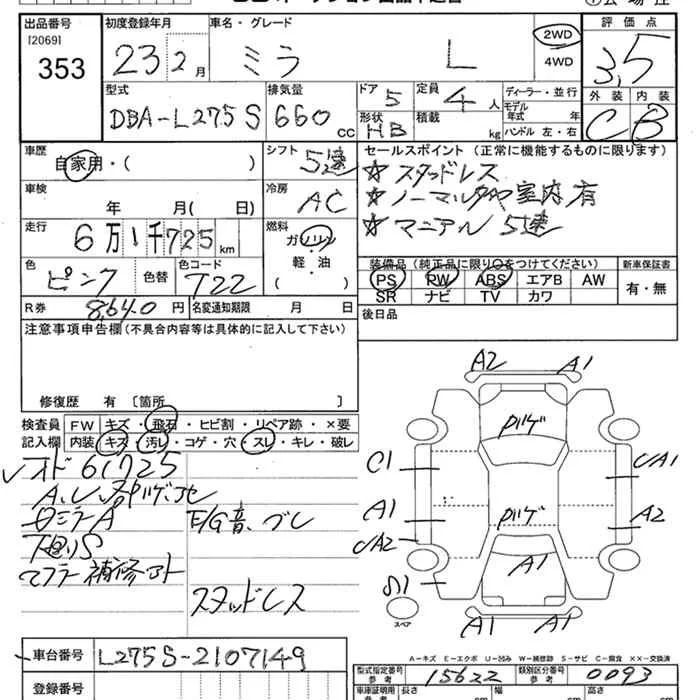 出品番号 初度登録年月 車名・グレード 評価点
[2069]
353 23 2月 ミラ L 2WD 4WD 3.5
型式 排気量 ドア 定員 ディーラー・並行 外装 内装
DBA-L275S 660cc 5 4人 モデル年式 年 C B
形状 積載 kg ハンドル 左・右
HB
車歴 シフト セールスポイント (正常に機能するものに限ります)
自家用・( ) 5速 ☆スタッドレス
車検 冷房 ☆ノーマルタイヤ室内有
年 月( 日) AC ☆マニアル 5速
走行 燃料
6万1千725km ガソリン
軽・油
( )
色 色替 色コード 装備品(純正品に限り○をつけてください) 新車保証書
ピンク T22 PS PW ABS エアB AW 有・無
SR ナビ TV カワ
R券 8,640円 名変通知期限 月 日 後日品
注意事項申告欄(不具合内容等は具体的に記入して下さい)
修復歴 有 [箇所 ]
検査員記入欄 FW キズ・飛石・ヒビ割・リペア跡・×要
内装 キズ・汚レ・コゲ・穴・スレ・キレ・破レ
オド 61725
E/G音、ブレ
マフラー補修アト
スタッドレス
A2 A1
C1 A1 A2
A1 A1 A1
スペア
A-キズ E-エクボ U-凹み W-補修跡 S-サビ C-腐食 XX-交換済
車台番号 L275S-2107149
型式指定番号 参考 15622 類別区分番号 参考 0093
登録番号 車庫証明用 参考 長さ 幅 高さ